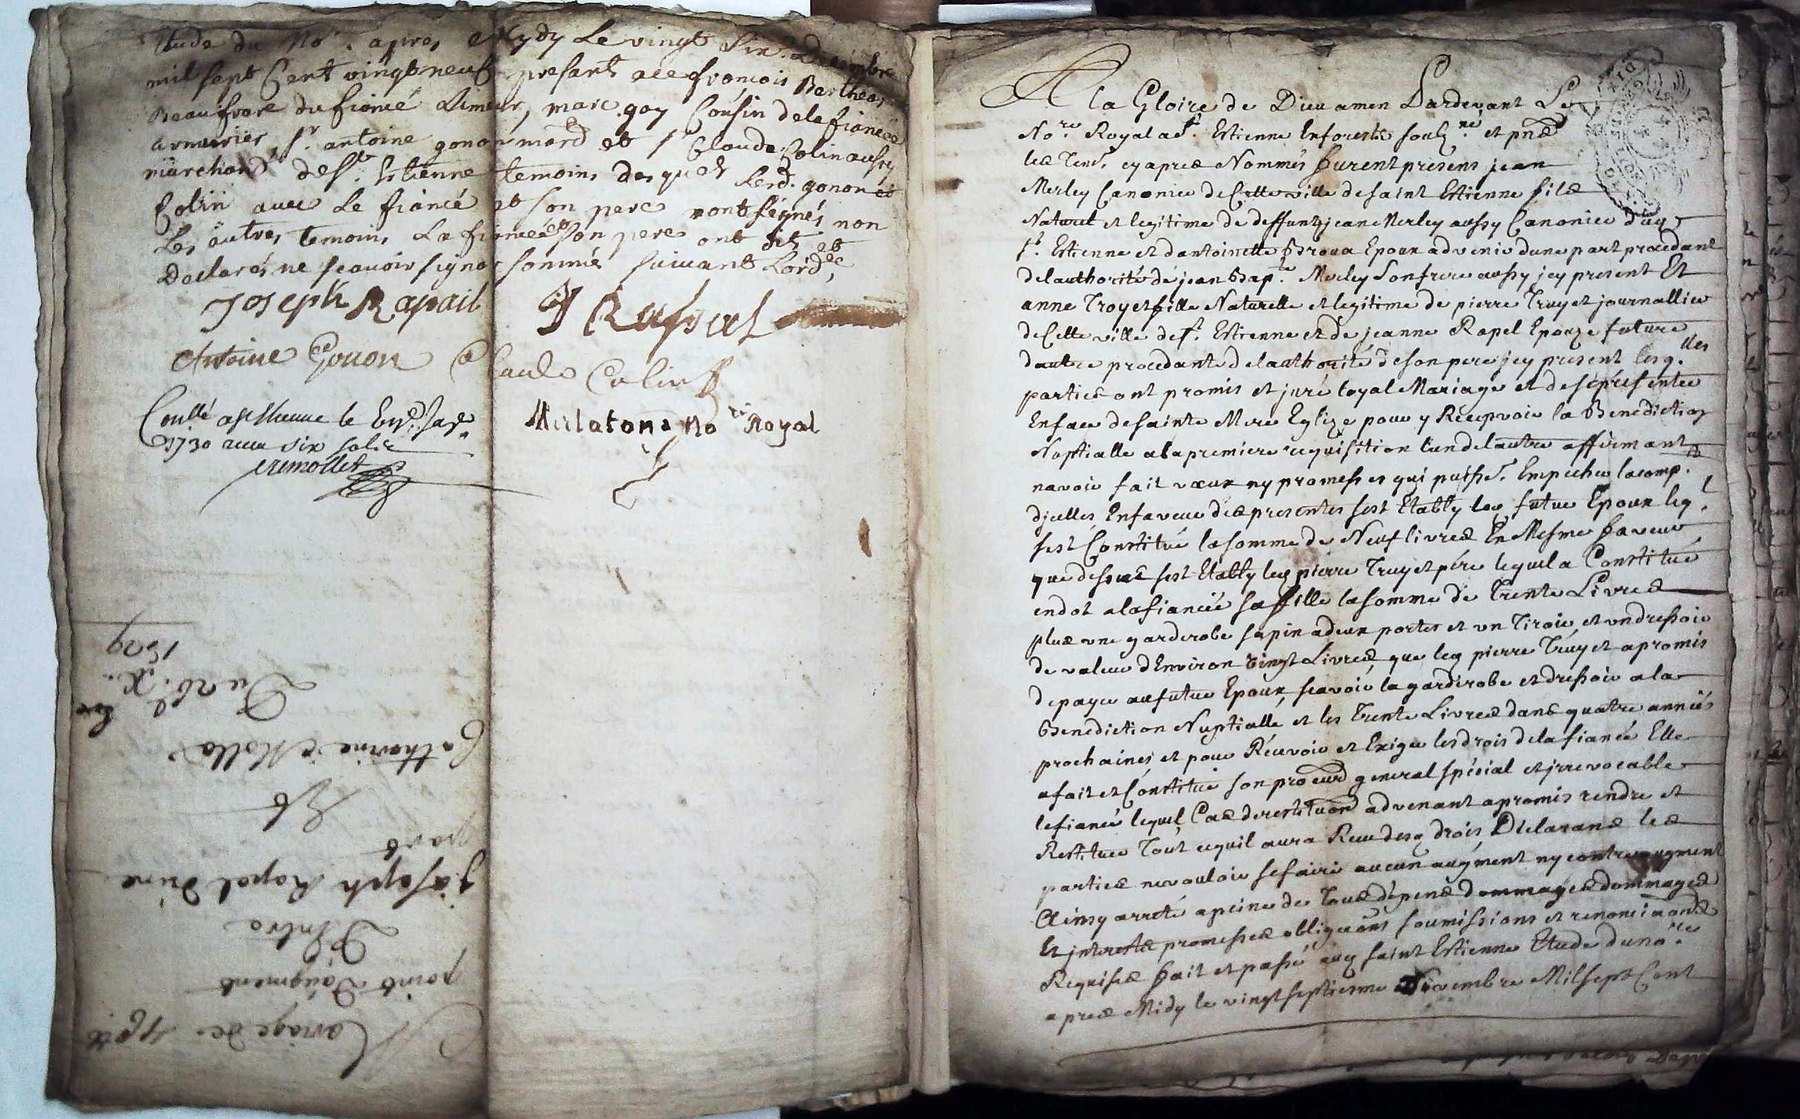 Etude du No.re apres Mydy Le vingt six decembre
mil sept Cent vingt neuf presant ace françois Bertheas
Beaufrere du fiancé Limeur, marc goy Cousin dela fiancée
armurier, s.r antoine gonon mard et s.r Claude Colin aussy
marchand de s.t Estienne temoins desquels Lesd. gonon et
Colin avec Le fiancé et son pere ont signés non
Les autres temoins La fiancée et son pere ont dit et
Declarés ne scavoir signer sommé suivant Lord.ce
Joseph Rapail J Rafael
Antoine Gonon Claude Colin
Conllé a st Estienne le
1730 receu six sols
Merlaton No.re Royal
A la Gloire de Dieu amen Pardevant Le
No.re Royal a s.t Estienne en forests soub.né et pnts
les Tem.s cy apres Nommés furent presens jean
Merley Canonier de Cette ville de saint Estienne fils
Naturel et legitime de deffunt jean Merley aussy Canonier dud
s.t Estienne et dantoinette Broua Epoux advenir dune part procedant
de lauthorité de jean Bap.te Merley son frere aussy jcy present Et
anne Troyet fille Naturelle et legitime de pierre Truyet journallier
de Cette ville de s.t Estienne et de jeanne Rapel Epouze future
dautre procedante de lauthorité de son pere jcy present lesq.lles
parties ont promis et juré loyal Mariage et de se presenter
En face de sainte Mere Eglize pour y Recepvoir la Benediction
Nuptialle a la premiere requisition lun de lautre affirmant
navoir fait vœux ny promesses qui puisse Empecher lacomp.
djcelles En faveur des presentes sest Etably led futur Epoux leq.l
sest Constitué la somme de Neuf livres En Mesme faveur
que dessus sest Etably led pierre Truyet pére lequel a Constitué
en dot a la fiancée sa fille la somme de Trente Livres
plus une garderobe sapin a deux portes et un Tiroir et un dressoir
de valeur d'Environ vingt Livres que led pierre Truyet a promis
de payer au futur Epoux scavoir la garderobe et dressoir a la
Benediction Nuptialle et les Trente Livres dans quatre années
prochaines et pour Recevoir et Exiger les drois de la fiancé Elle
a fait et Constitué son procurr general spécial et jrrevocable
le fiancé lequel Cas de restitution advenant a promis rendre et
Restituer Tout cequil aura Receu desd drois Declarans les
parties ne vouloir se faire aucun augment ny contreaugment
Ainsy arreté a peine de Tous dépens dommages dommages
Et interests promesses obligãons soumissions et renonciaons
Requises fait et passé aud saint Estienne Etude du no.re
apres Midy le vingt septieme Novembre Mil sept Cent
Mariage de
point daugment
D'Entre
joseph Rapel dune
part
Et
Catherine Molla
Du 26. X.bre
1729